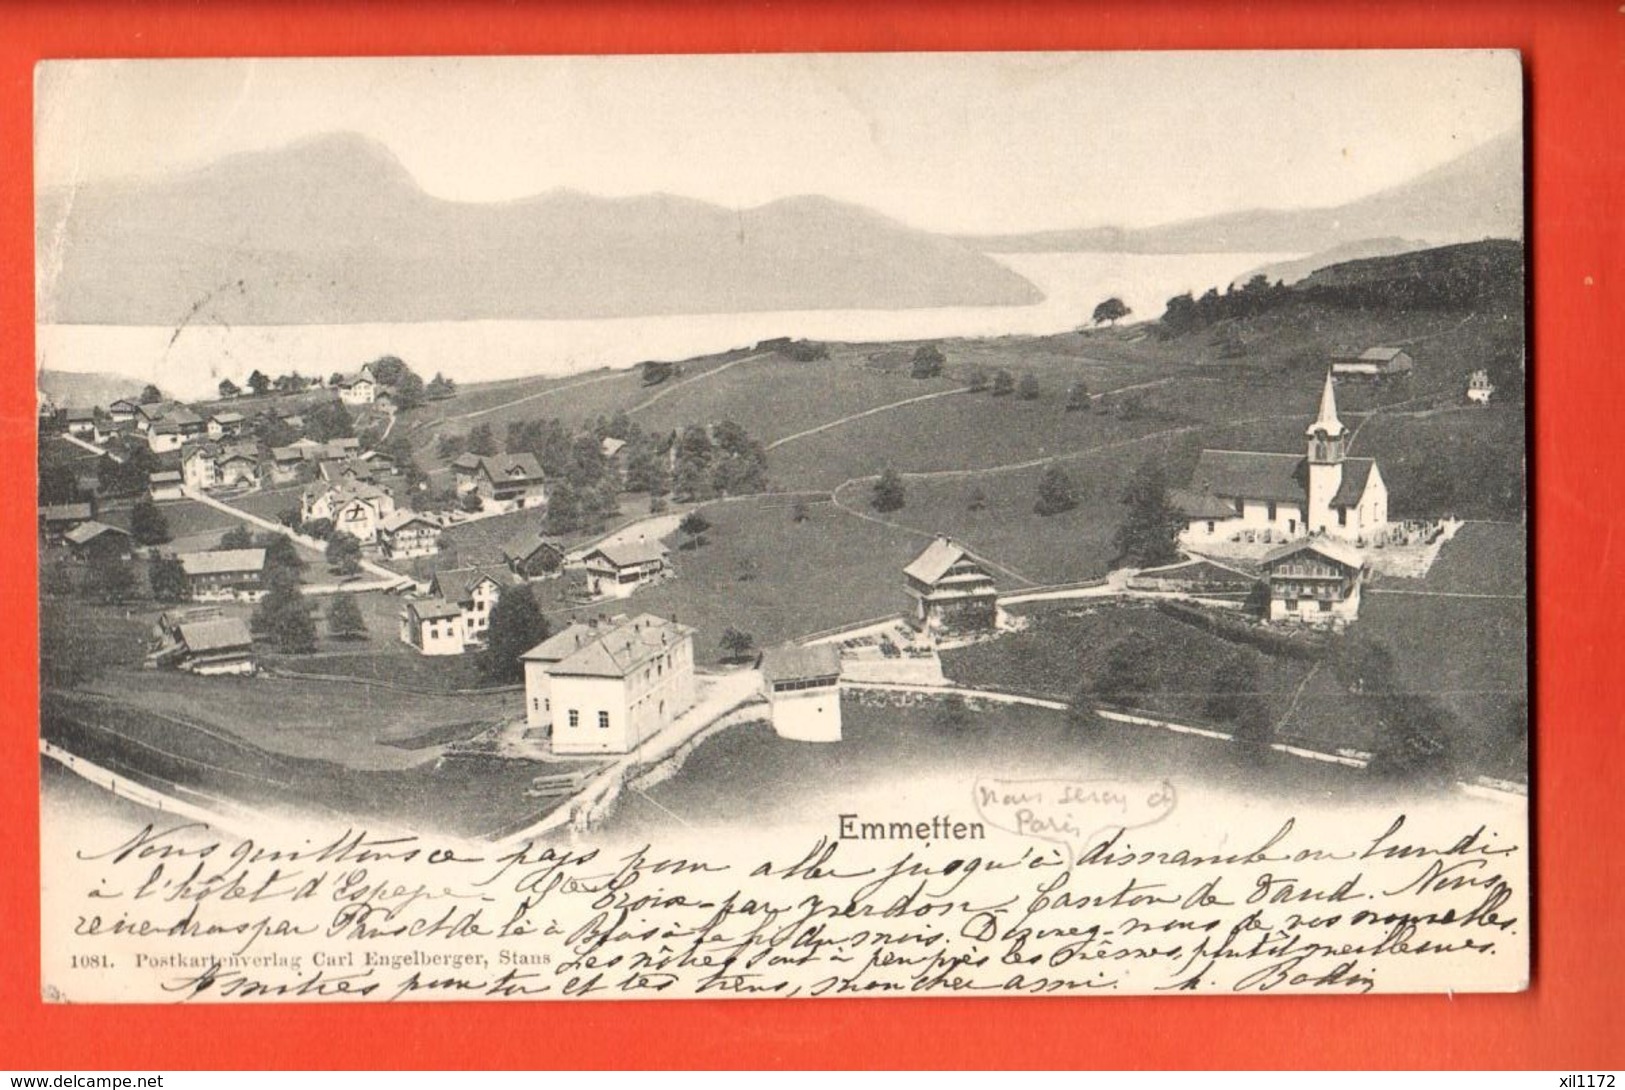 Nous serons à
Paris
Emmetten
Nous quittons ce pays pour aller jusqu'à dimanche ou lundi
à l'hôtel d'Espagne - Ste Croix - par Yverdon - Canton de Vaud. Nous
reviendrons par Paris et de là à Blois à la fin du mois. Donnez-nous de vos nouvelles.
1081. Postkartenverlag Carl Engelberger, Stans
Les nôtres sont à peu près les mêmes, plutôt meilleures.
Amitiés pour toi et les tiens, mon cher ami.